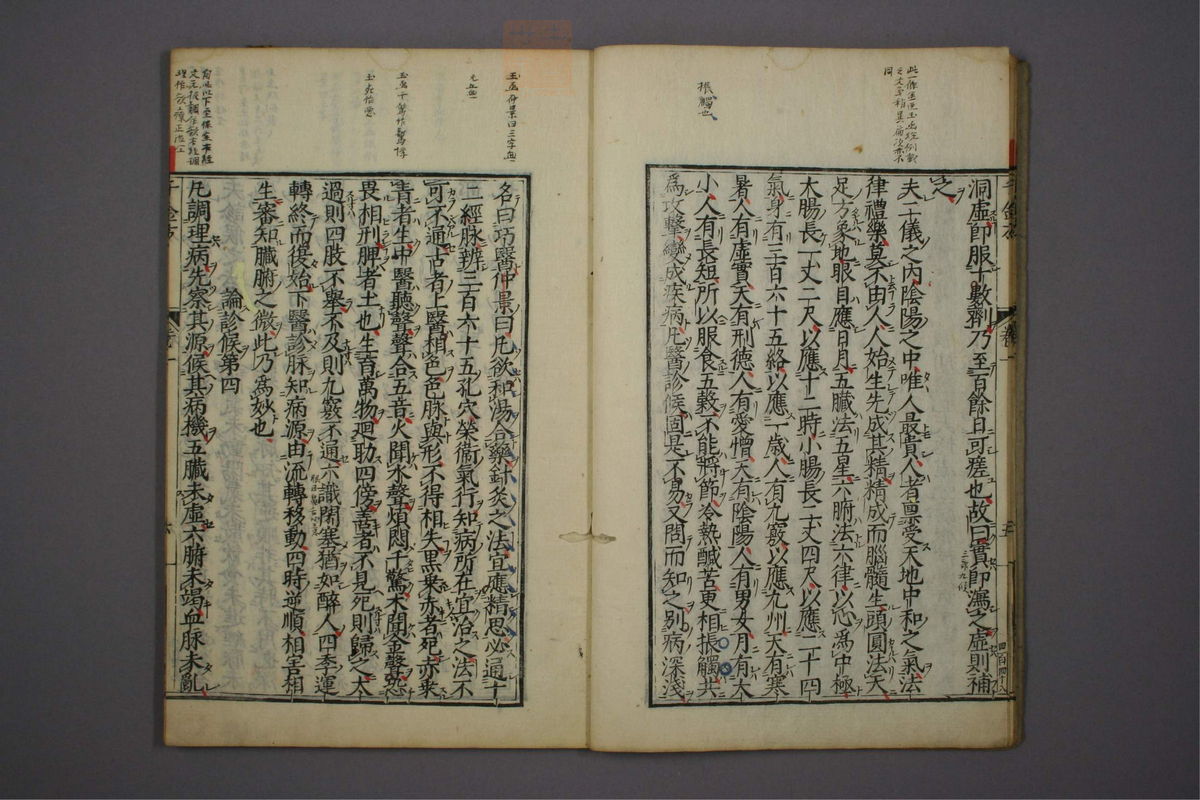 洞虛即服十數劑乃至百餘日可瘥也故曰實即瀉之虛則補
之
夫二儀之內陰陽之中唯人最貴人者禀受天地中和之氣法
律禮樂莫不由人人始生先成其精精成而腦髓生頭圓法天
足方象地眼目應日月五臟法五星六腑法六律以心為中極
大腸長一丈二尺以應十二時小腸長二丈四尺以應二十四
氣身有三百六十五絡以應一歲人有九竅以應九州天有寒
暑人有虛實天有刑德人有愛憎天有陰陽人有男女月有大
小人有長短所以服食五穀不能將節冷熱鹹苦更相振觸共
為攻擊變成疾病凡醫診候固是不易又問而知之別病深淺
名曰巧醫仲景曰凡欲和湯合藥針灸之法宜應精思必通十
二經脉辨三百六十五孔穴榮衛氣行知病所在宜治之法不
可不通古者上醫相色色脉與形不得相失黑乘赤者死赤乘
青者生中醫聽聲聲合五音火聞水聲煩悶干驚木聞金聲恐
畏相刑脾者土也生育萬物迴助四傍善者不見死則歸之太
過則四肢不舉不及則九竅不通六識閉塞猶如醉人四季運
轉終而復始下醫診脉知病源由流轉移動四時逆順相害相
生審知臟腑之微此乃為妙也
論診候第四
凡調理病先察其源候其病機五臟未虛六腑未竭血脉未亂
千金方
卷一
五
六
振觸也
玉函仲景曰三字無
玉函干驚作驚悸